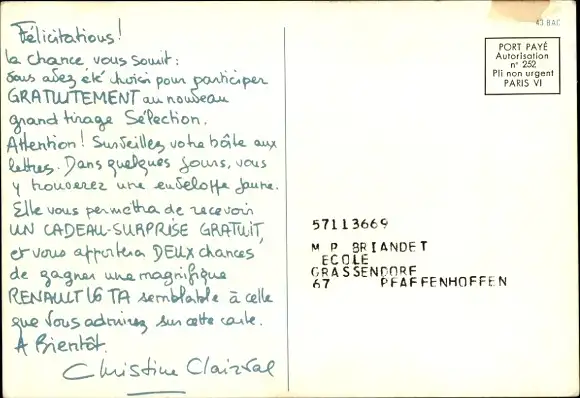 Félicitations!
la chance vous sourit:
vous avez été choisi pour participer
GRATUITEMENT au nouveau
grand tirage Sélection.
Attention! Surveillez votre boîte aux
lettres. Dans quelques jours, vous
y trouverez une enveloppe jaune.
Elle vous permettra de recevoir
UN CADEAU-SURPRISE GRATUIT,
et vous apportera DEUX chances
de gagner une magnifique
RENAULT 16 TA semblable à celle
que vous admirez sur cette carte.
A Bientôt.
Christine Clairval
43 BAC
PORT PAYÉ
Autorisation
n° 252
Pli non urgent
PARIS VI
57113669
M P BRIANDET
ECOLE
GRASSENDORF
67 PFAFFENHOFFEN